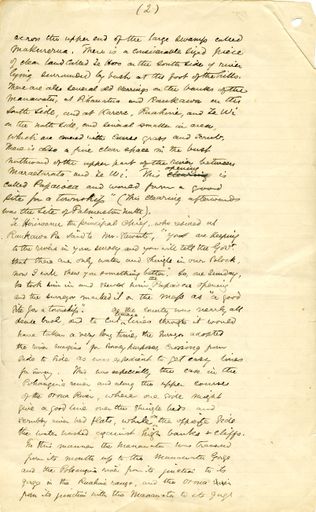 (2)
across the upper end of the large swamps called
Makurerua. There is a considerable sized piece
of clear land called Te Horo on the South side of river
lying surrounded by bush at the foot of the hills.
There are also several old clearings on the banks of the
Manawatu, at Pohuetua and Raukawa on the
South side, and at Karere, Ruahine, and Te Wi
on the north side, and several smaller in area,
which are covered with grass and scrub.
There is also a fine clear space in the bush
northward of the upper part of the river between
and Te Wi. This opening
called Papaioea and would form a good
site for a township" (This clearing afterwards
was the site of Palmerston North).
Te Hirawanu the principal chief, who resided at
Raukawa had said to Mr Stewart, "you are keeping
to the rivers in your survey and you will tell the Gov.
that there are only water and shingle in our block,
now I will show you something better." So, one Sunday,
he took him in and showed him the Papaioea opening
and the surveyor marked it on the map as "a good
site for a township." As the country was nearly all
dense bush and to cut lines through it would
have taken a very long time, the surveyor adopted
the river margins for survey purposes, crossing from
side to side as was expedient to get easy lines
for survey. This was especially the case in the
Pohangina river and along the upper courses
of the Oroua River, where one side might
give a good line over the shingle beds and
scrubby river bed flats, while the opposite side
the water washed against high banks and cliffs.
In this manner the Manawatu was traversed
from its mouth up to the Manawatu Gorge
and the Pohangina river from its junction to its
gorge in the Ruahine range, and the Oroua river
from its junction with the Manawatu to its gorge